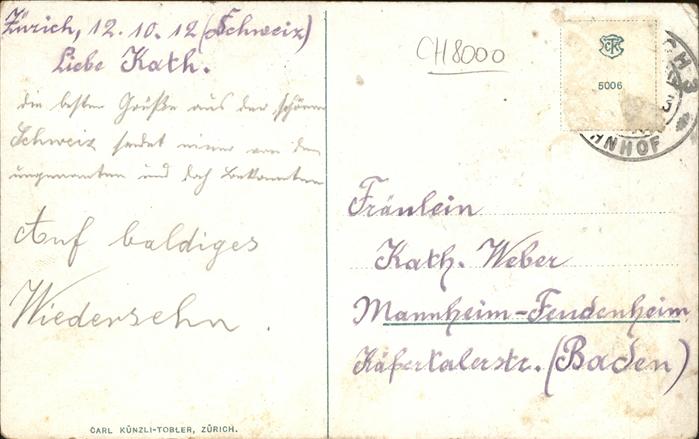 Zürich, 12.10.12 (Schweiz)
Liebe Kath.
die besten Grüße aus der schönen
Schweiz sendet einer von den
ungenannten und doch bekannten
Auf baldiges
Wiedersehn.
CARL KÜNZLI-TOBLER, ZÜRICH.
CH8000
5006
HNHOF
Fräulein
Kath. Weber
Mannheim-Feudenheim
Käfertalerstr. (Baden)